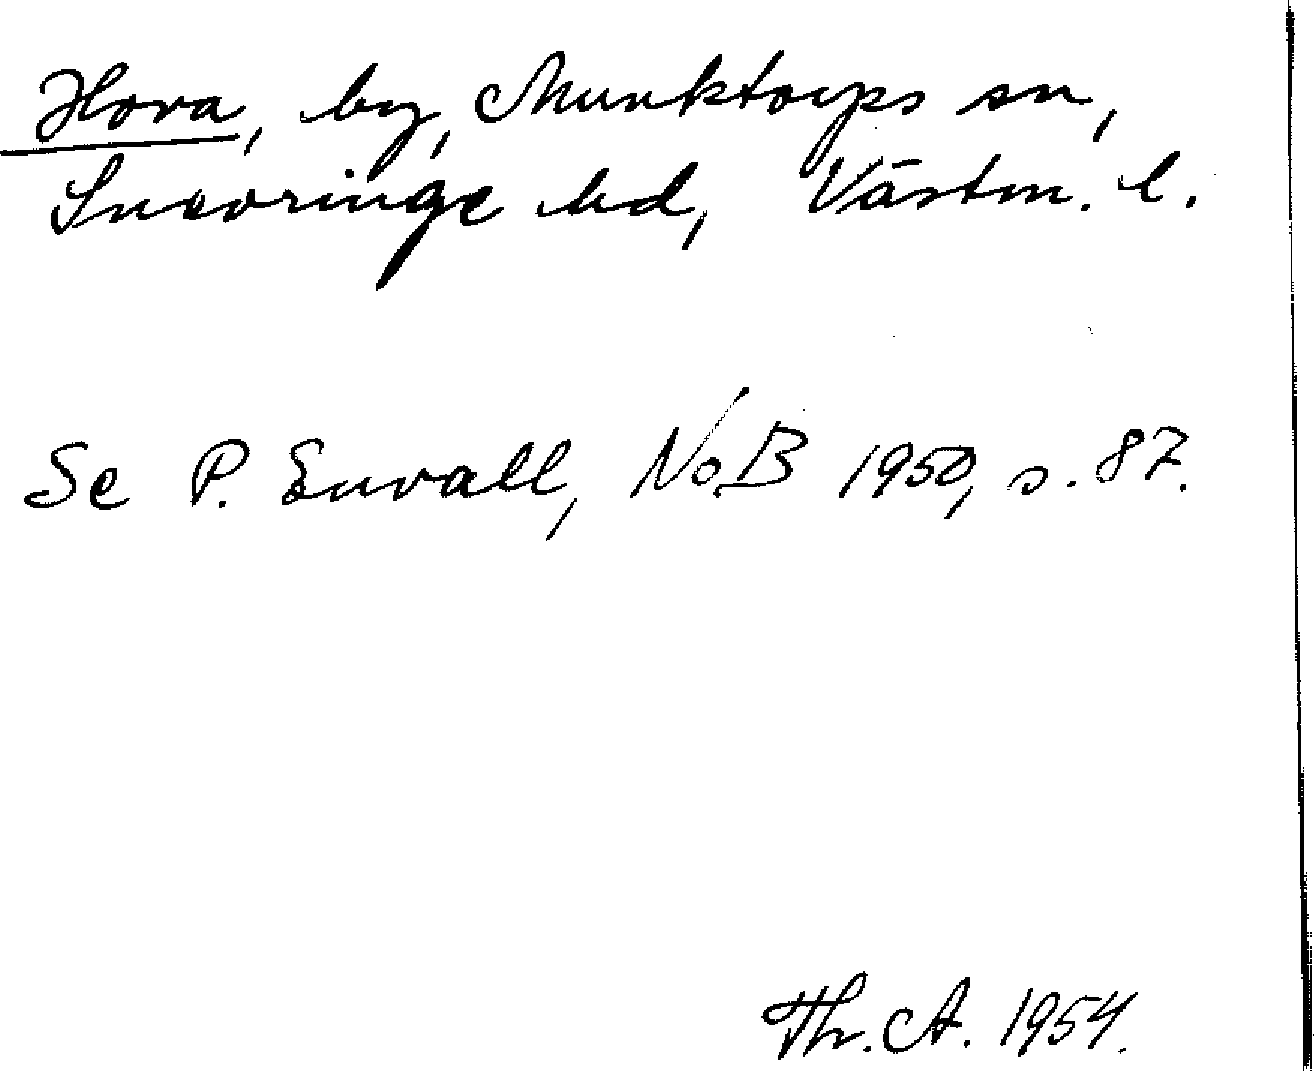 Hova, by, Munktorps sn,
Snevringe hd, Västm. l.
Se P. Envall, NoB 1950, s. 87.
Th. A. 1954.